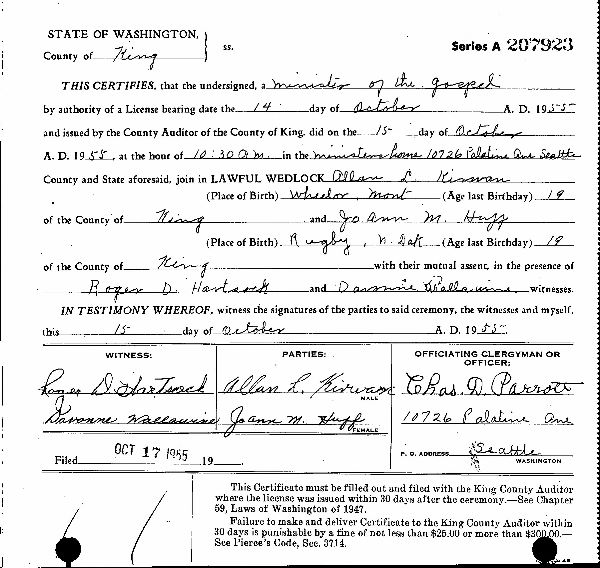 STATE OF WASHINGTON,
County of King ss. Series A 207923
THIS CERTIFIES, that the undersigned, a minister of the gospel
by authority of a License bearing date the 14 day of October A. D. 1955
and issued by the County Auditor of the County of King, did on the 15 day of October
A. D. 1955, at the hour of 10:30 A.M. in the ministers home 10726 Palatine Ave Seattle
County and State aforesaid, join in LAWFUL WEDLOCK Allan L Kirwan
(Place of Birth) Wheeler, Mont (Age last Birthday) 19
of the County of King and Jo Ann M. Huff
(Place of Birth) Rugby, N. Dak (Age last Birthday) 19
of the County of King with their mutual assent, in the presence of
Roger D. Hartsock and Davonne Wallawine, witnesses.
IN TESTIMONY WHEREOF, witness the signatures of the parties to said ceremony, the witnesses and myself,
this 15 day of October A. D. 1955
WITNESS: PARTIES: OFFICIATING CLERGYMAN OR OFFICER:
Roger D. Hartsock Allan L. Kirwan Chas. D. Parrott
MALE
Davonne Wallawine Joann M. Huff 10726 Palatine Ave
FEMALE
Filed OCT 17 1955 19 P. O. ADDRESS Seattle
WASHINGTON
This Certificate must be filled out and filed with the King County Auditor
where the license was issued within 30 days after the ceremony.—See Chapter
59, Laws of Washington of 1947.
Failure to make and deliver Certificate to the King County Auditor within
30 days is punishable by a fine of not less than $25.00 or more than $300.00.—
See Pierce's Code, Sec. 3714.